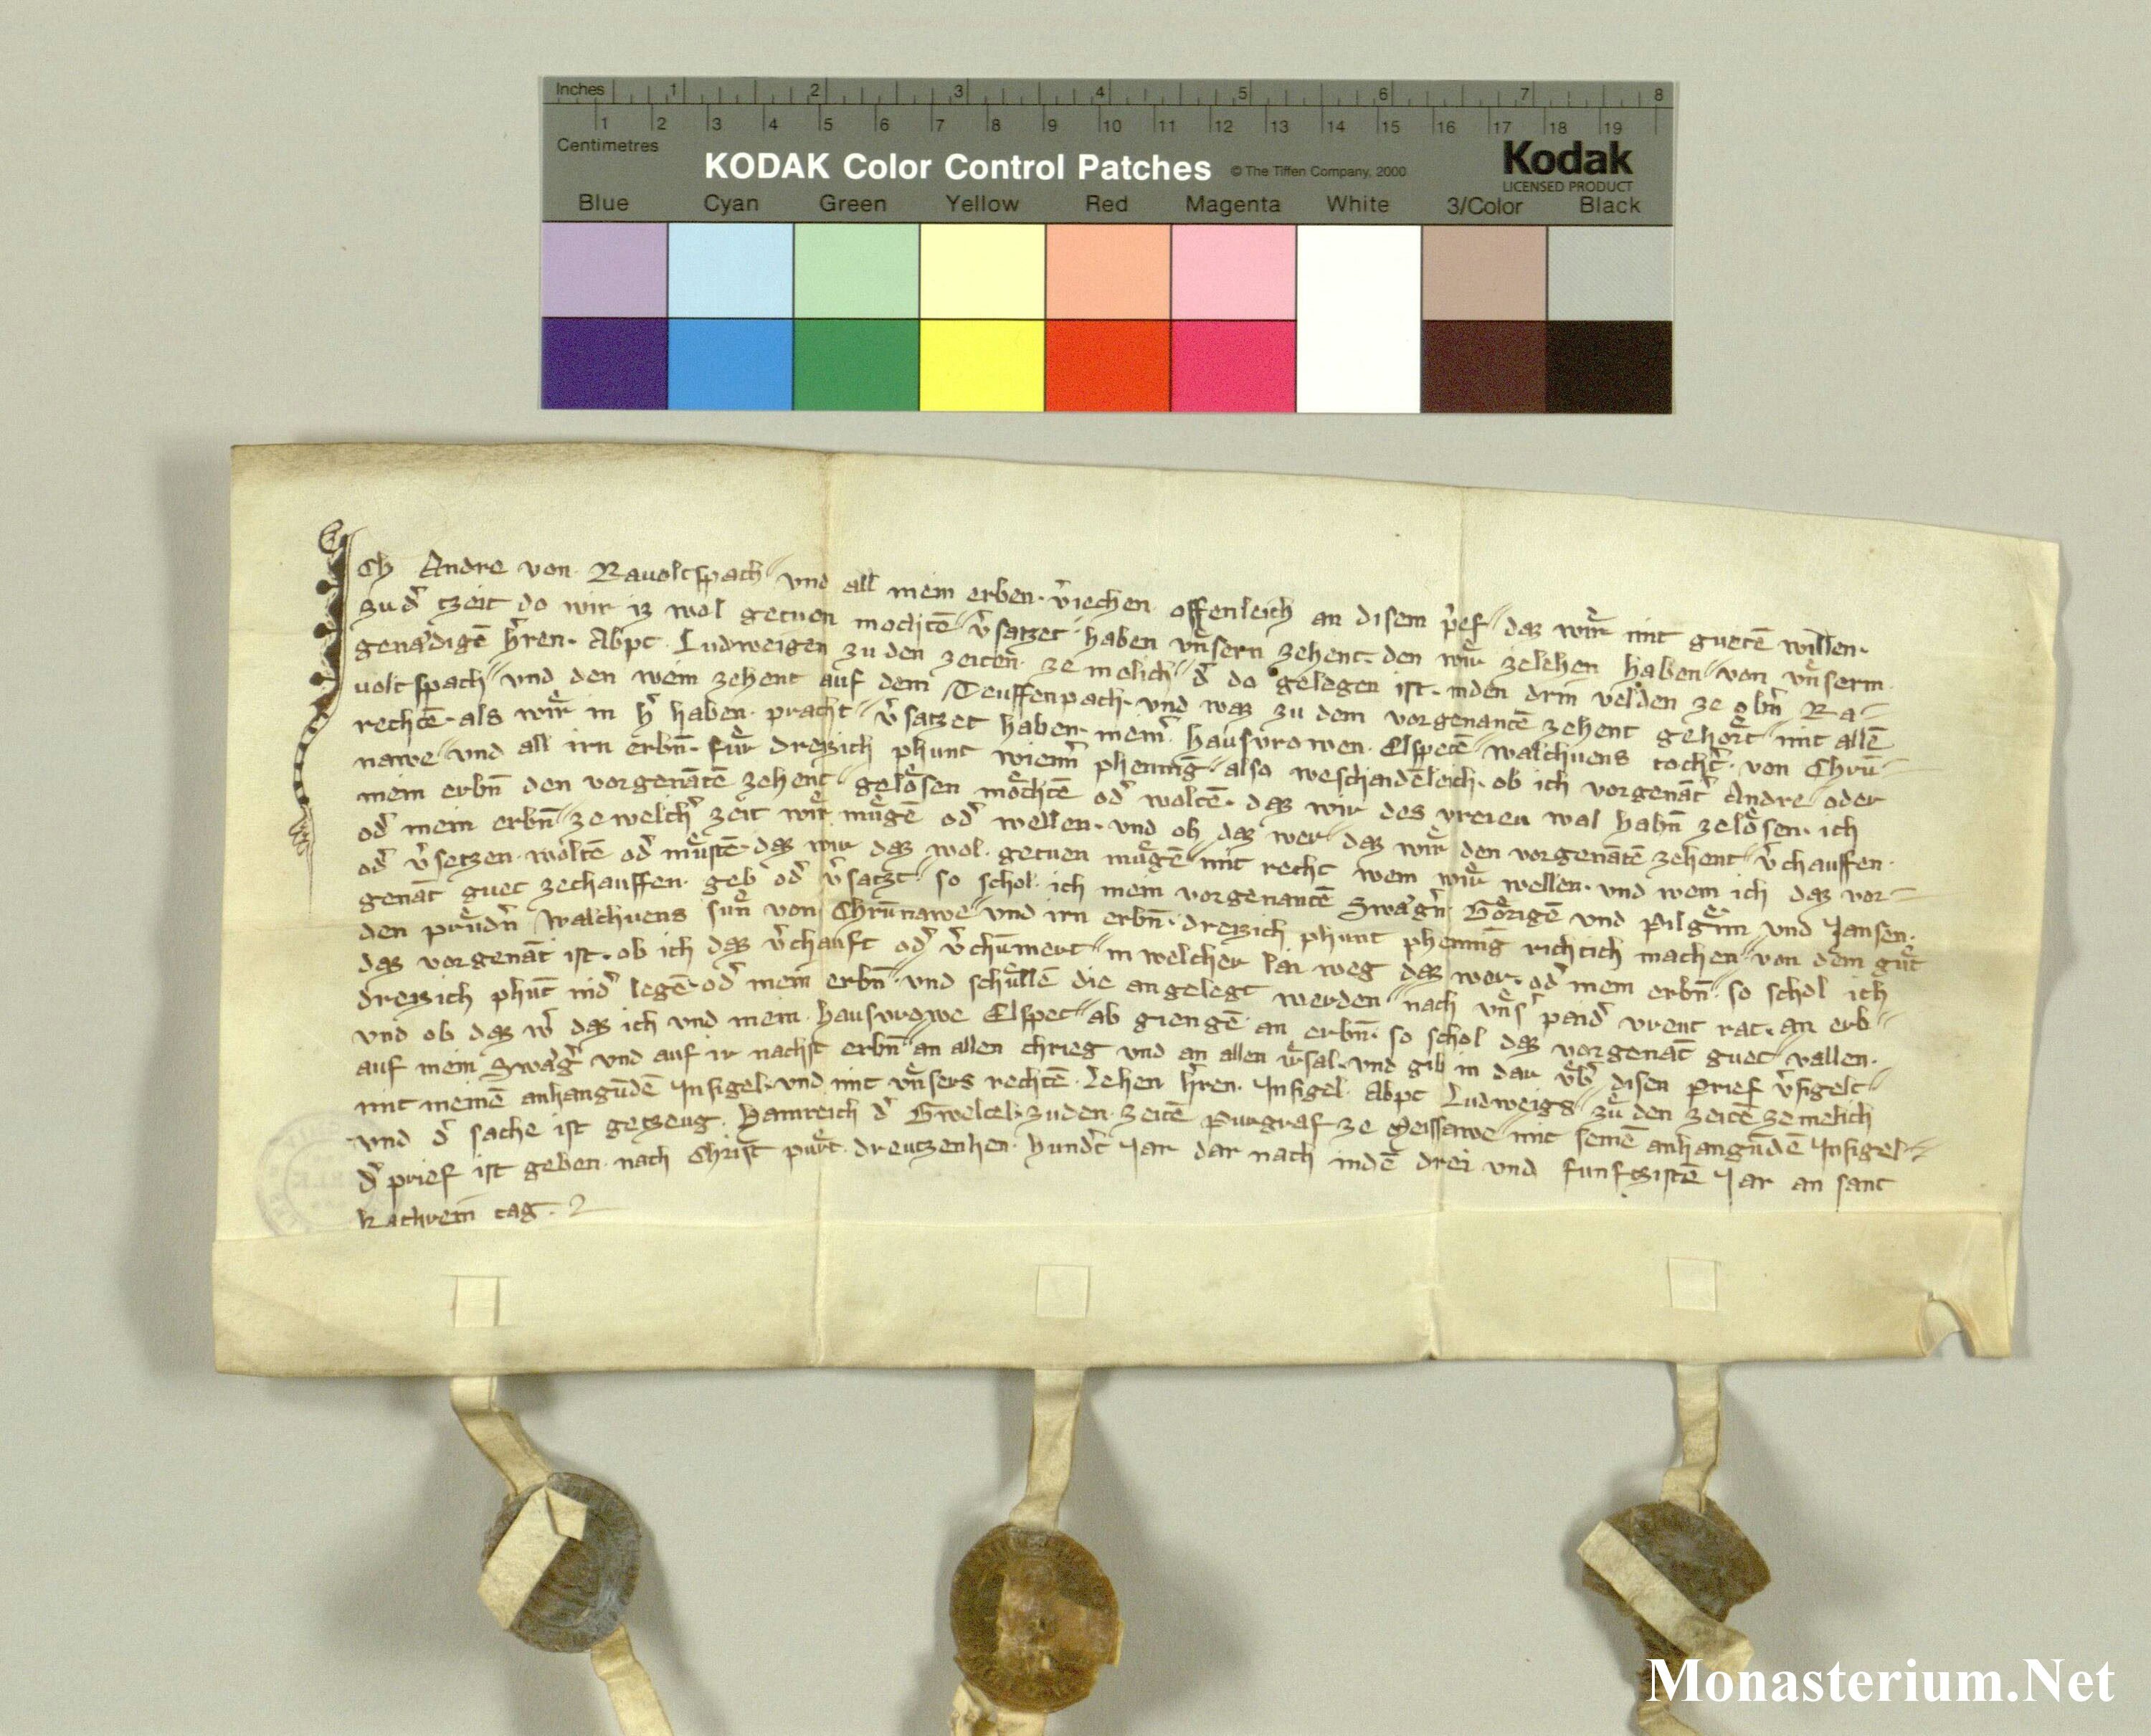 Inches 1 2 3 4 5 6 7 8
1 2 3 4 5 6 7 8 9 10 11 12 13 14 15 16 17 18 19
Centimetres
KODAK Color Control Patches © The Tiffen Company, 2000 Kodak
LICENSED PRODUCT
Blue Cyan Green Yellow Red Magenta White 3/Color Black
Ich Andre von Rauoltspach und all mein erben v̄iechen offenleich an disem p̄ef daz wir mit guetē willen
zu d̄ tzeit do wir iz wol getuen mochtē v̄satzet haben vnsern zehent den wir ze lehen haben von vnserm
genadigē h̄ren Abpt Ludweigen zu den zeiten ze melich d̄ do gelegen ist in den drin velden ze obn̄ Ra=
uoltspach und den wein zehent auf dem Teuffenpach und waz zu dem vorgenantē zehent gehort mit allē
rechtē als wir in h̄ haben pracht v̄satzet haben mein̄ hausvrowen Elspetē walchuens tocht̄ von Chru=
nawe und all irn erbn̄ fur dreizich phunt wienn̄ phenning also weschaidēleich ob ich vorgenāt̄ Andre oder
mein erbn̄ den vorgenātē zehent gelosen mochtē od̄ woltē daz wir des vreien wal habn̄ ze losen ich
od̄ mein erbn̄ ze welch̄ zeit wir mugē od̄ wellen und ob daz wer daz wir den vorgenātē zehent v̄chauffen
od̄ v̄setzen woltē od̄ mustē daz wir daz wol getuen mugē mit recht wem wir wellen und wem ich daz vor=
genāt guet ze chauffen geb od̄ v̄satzt so schol ich mein vorgenantē Swagn̄ Gorigē und Pilgrim und Jansen
den prudn̄ Walchuens sun von Chrunawe und irn erbn̄ dreizich phunt phenning richtich machen von dem gut
daz vorgenāt ist ob ich daz v̄chauft od̄ v̄chumert in welcher lai weg daz wer od̄ mein erbn̄ so schol ich
dreizich phūt nid̄ legē od̄ mein erbn̄ und schullē die angelegt werden nach vns̄ paid̄ vrent rat an erb
und ob daz w̄ daz ich und mein hausvrowe Elspet ab giengē an erbn̄ so schol daz vorgenāt guet vallen
auf mein Swaḡ und auf ir nachst erbn̄ an allen chrieg und an allen irsal und gib in dar vb̄ disen prief v̄sigelt
mit meinē anhangūdē Insigel und mit vnsers rechtē Lehen h̄ren Insigel Abpt Ludweigs zu den zeitē ze melich
und d̄ sache ist getzeug Hainreich d̄ zu den zeitē Purgraf ze Meissawe mit seinē anhangūdē Insigel
d̄ prief ist geben nach Christ purt dreutzenhen hund̄t Jar dar nach indē drei und funftzistē Jar an sant
Kathrein tag
Monasterium.Net